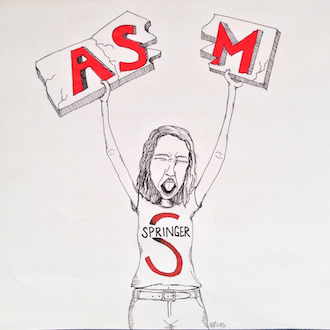 AS M
S
SPRINGER